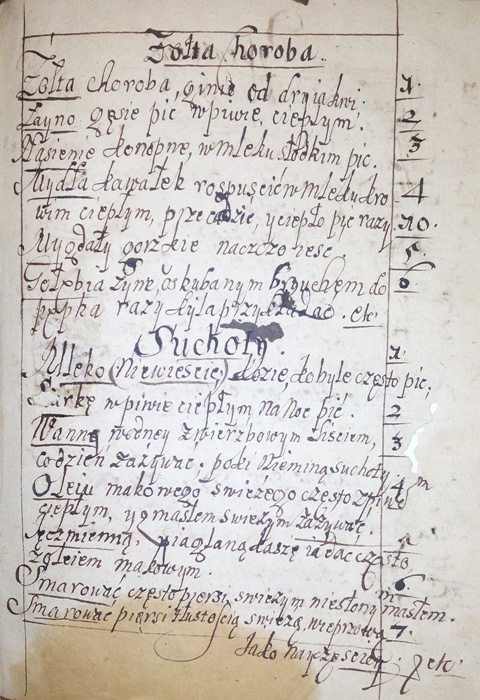 Zołta horoba.
Zołta choroba, ginie od dryjakwi. 1.
Łayno gęsie pic w piwie, ciepłym. 2
Nasienie konopne, w mleku słodkim pic. 3
Mydła kawałek rospuścić w mleku kro 4
wim ciepłym, przecadzic, y ciepło pyc razy 10.
Mygdały gorzkie naczczo iesc. 5
Gołębia żywe, oskubanym brzuchem do 6
pępka razy kyla przykładac. etc
Suchoty.
Mleko (Niewiescie) kozie, kobyle często pic, 1
Siarkę w piwie ciepłym na noc pic. 2
Wannę wodney z wierzbowym liściem, 3
codzień zażywac. poki nieminą suchoty
Oleiu makowego swiezego często z piwem 4
ciepłym, y z masłem swiezym zażywac.
Jęczmienną, kaszę iadac często, 5
z oleiem makowym.
Smarowac często piersi, swieżym niesłonym masłem. 6.
Smarować piersi tłustością swieżą, wieprzową 7.
Jako nayczęsciey. etc